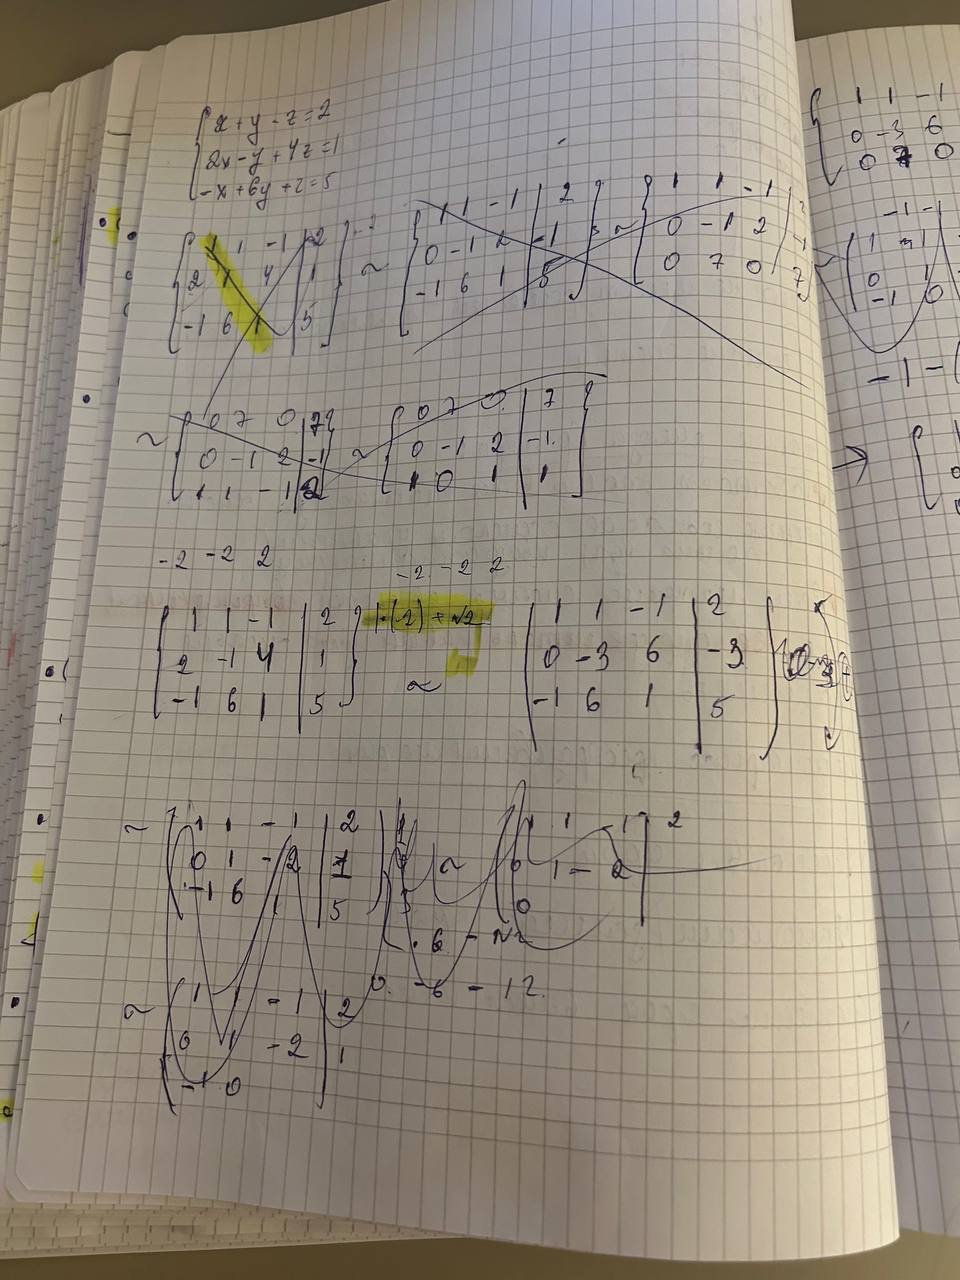 x + y - z = 2
2x - y + 4z = 1
-x + 6y + z = 5
1 1 -1 | 2
2 1 4 | 1
-1 6 1 | 5
~
1 1 -1 | 2
0 -1 2 | -1
-1 6 1 | 5
~
1 1 -1
0 -1 2 | -1
0 7 0 | 7
~
0 7 0 | 7
0 -1 2 | -1
1 1 -1 | 2
~
0 7 0 | 7
0 -1 2 | -1
1 0 1 | 1
-2 -2 2
1 1 -1 | 2
2 -1 4 | 1
-1 6 1 | 5
|·(-2) + N2
~
-2 -2 2
1 1 -1 | 2
0 -3 6 | -3
-1 6 1 | 5
~
1 1 -1 | 2
0 1 -2 | 1
-1 6 1 | 5
~
1 1 -1 | 2
0 1 -2
0
0 -6 -12
~
1 1 -1 | 2
0 1 -2 | 1
-1 0
1 1 -1
0 -3 6
0 7 0
-1 -1
0 1
-1 0
-1 - (
→